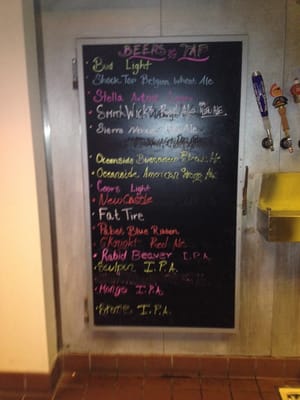 BEERS on TAP
Bud Light
Shock Top Belgian Wheat Ale
Stella Artois
SmithWick's Red Ale
Sierra Ale
Oceanside Pale Ale
Oceanside American Ale
Coors Light
NewCastle
Fat Tire
Pabst Blue Ribbon
G.Knight Red Ale
Rabid Beaver I.P.A
Sculpin I.P.A.
Mango I.P.A
I.P.A.